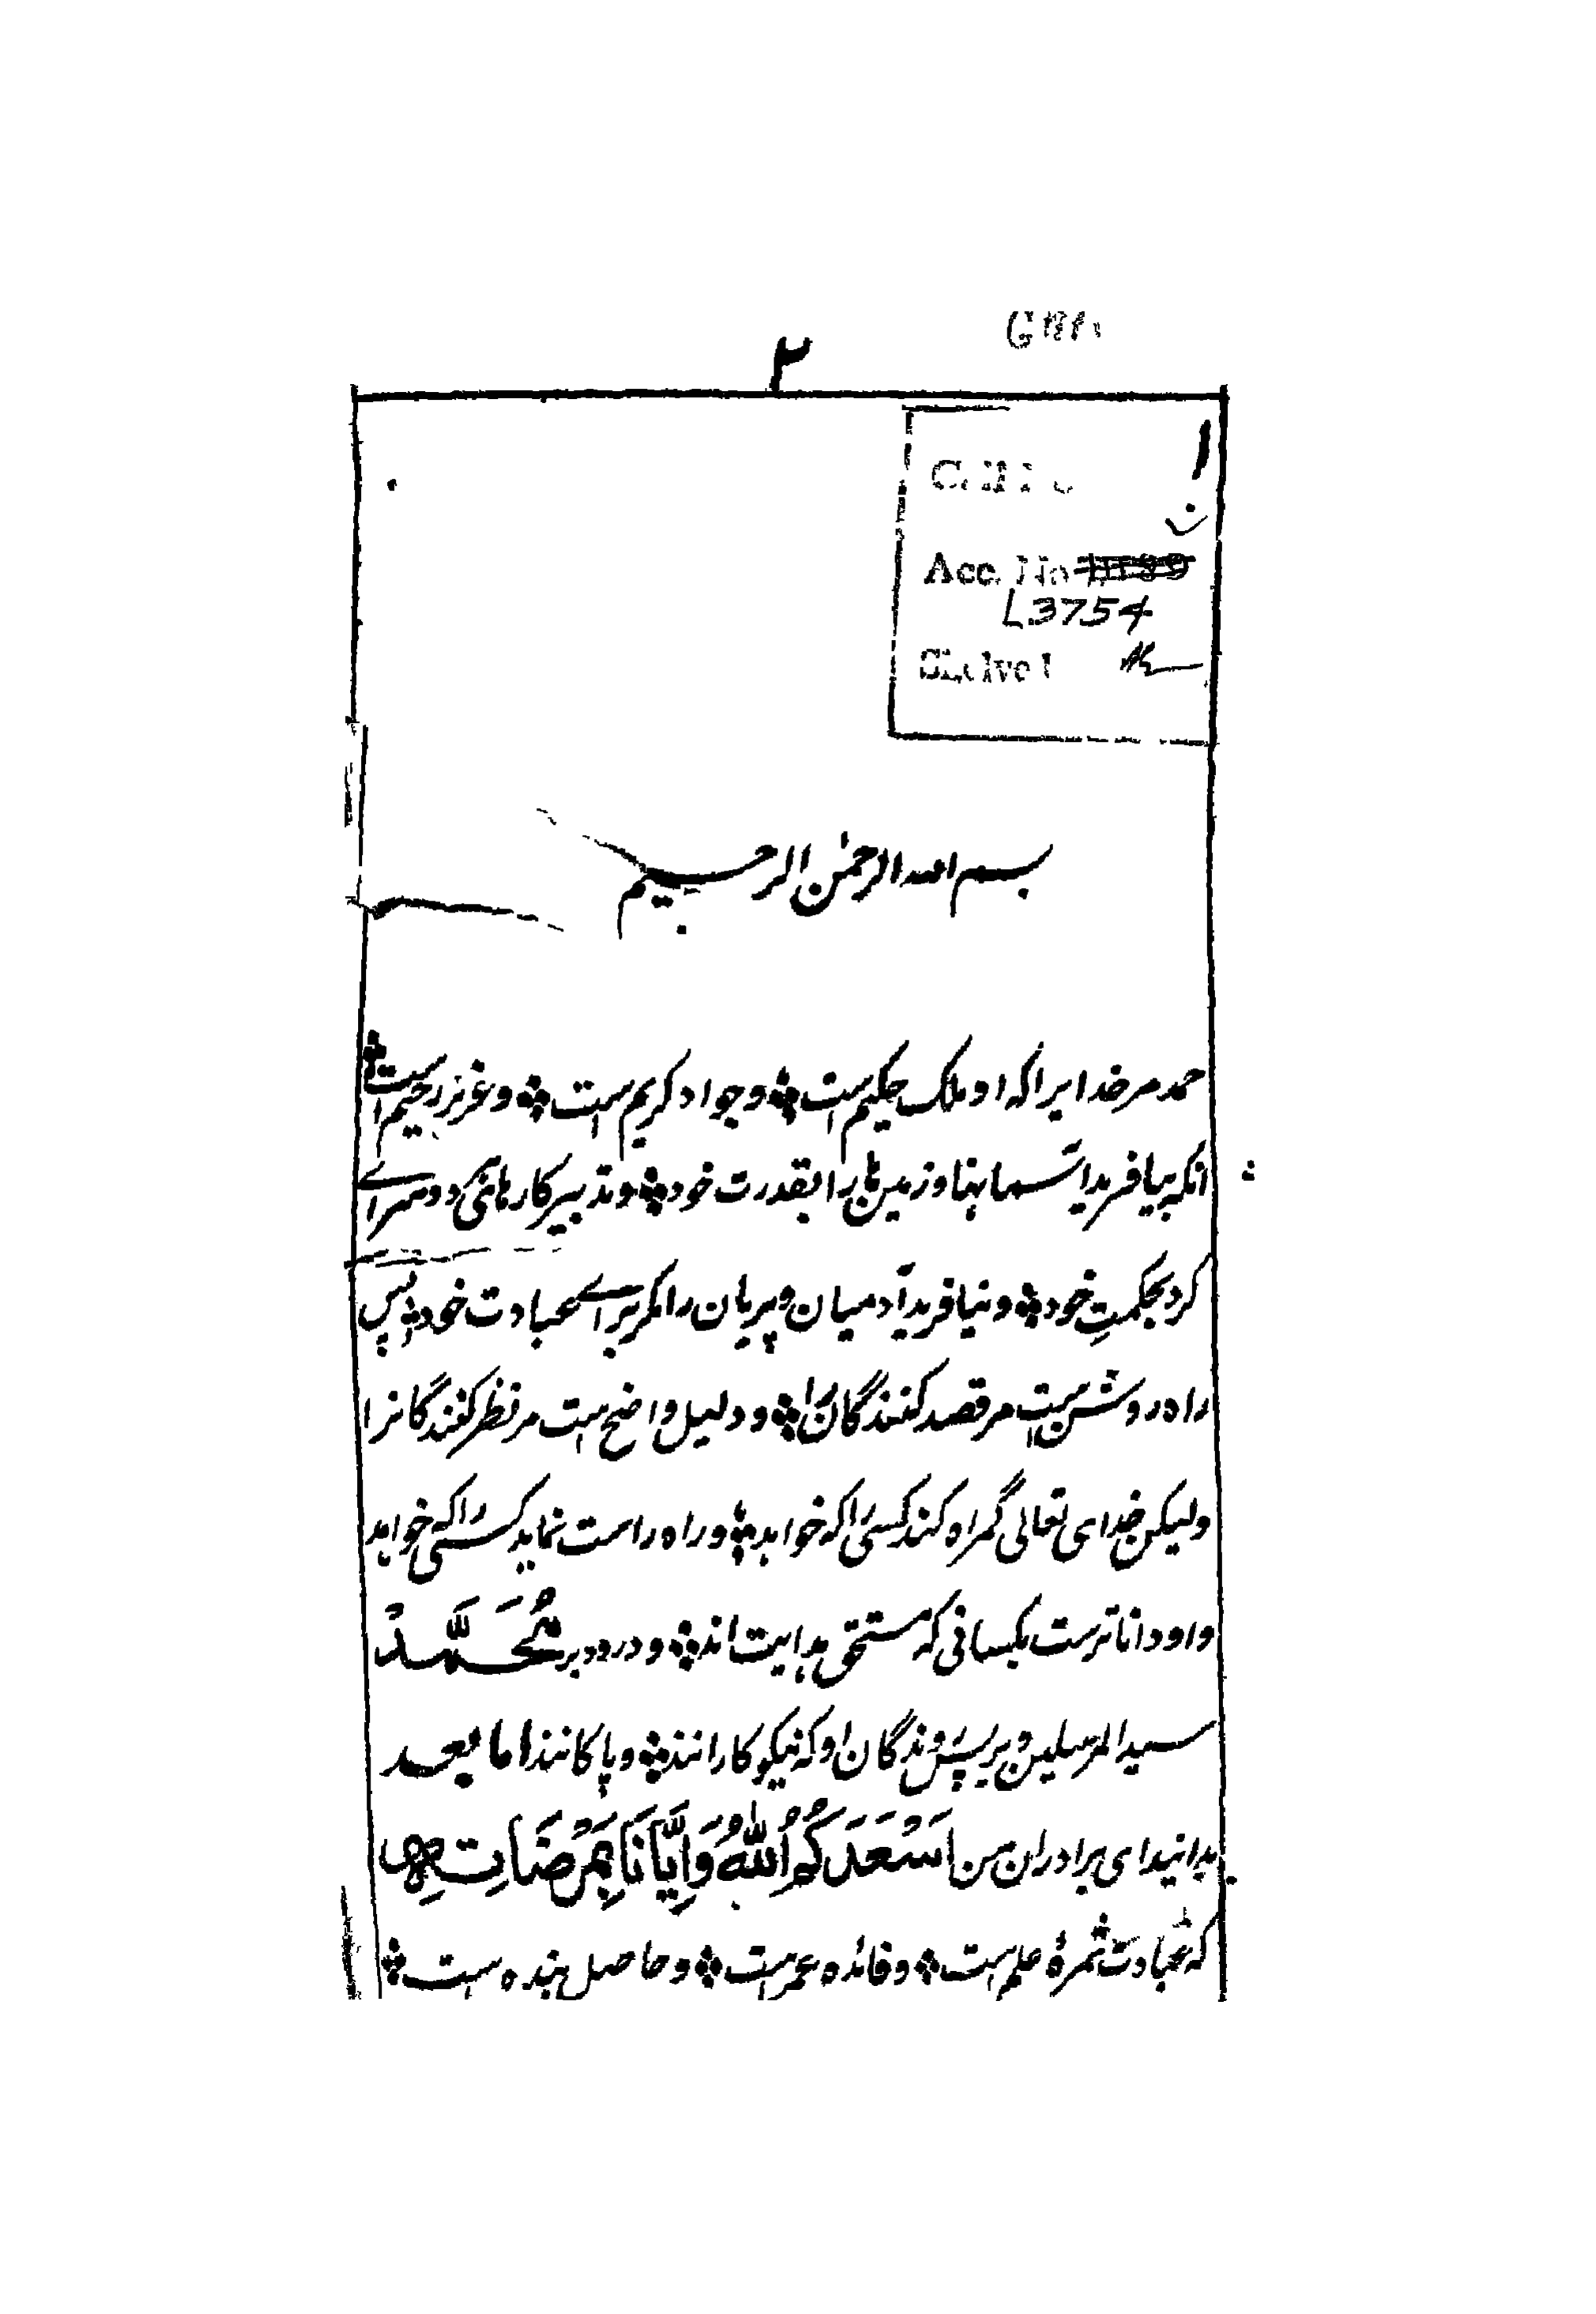 ۲
Acc. No
L3754
بسم الله الرحمن الرحیم
حمد مر خدایرا که او ملک حکیم است؞ و جواد کریم است؞ و عزیز رحیم است؞
انکه بیافرید آسمانها و زمین ها را بقدرت خود؞ و تدبیر کارهای دو سرای
کرد بحکمتِ خود؞ و نیافرید آدمیان و پریان را مگر برای عبادت خود؞ پس
راه روشن ست مر قصد کنندگان را؞ و دلیل واضح است مر نظر کنندگانرا
ولیکن خدای تعالی گمراه کند کسی را که خواهد؞ و راه راست نماید کسی را که خواهد
و او داناترست بکسانی که مستحق هدایت اند؞ و درود بر مُحَمَّدْ
سید المرسلین و بر پس روندگان او که نیکو کارانند؞ و پاکانند اما بعد
بدانید ای برادران من اَسْعَدَکُمُ اللّٰهُ وَاِیَّانَا بِمَرْضَاتِهِ
که عبادت ثمرهٔ علم است؞ و فائده عمرست؞ و حاصل بنده ست؞